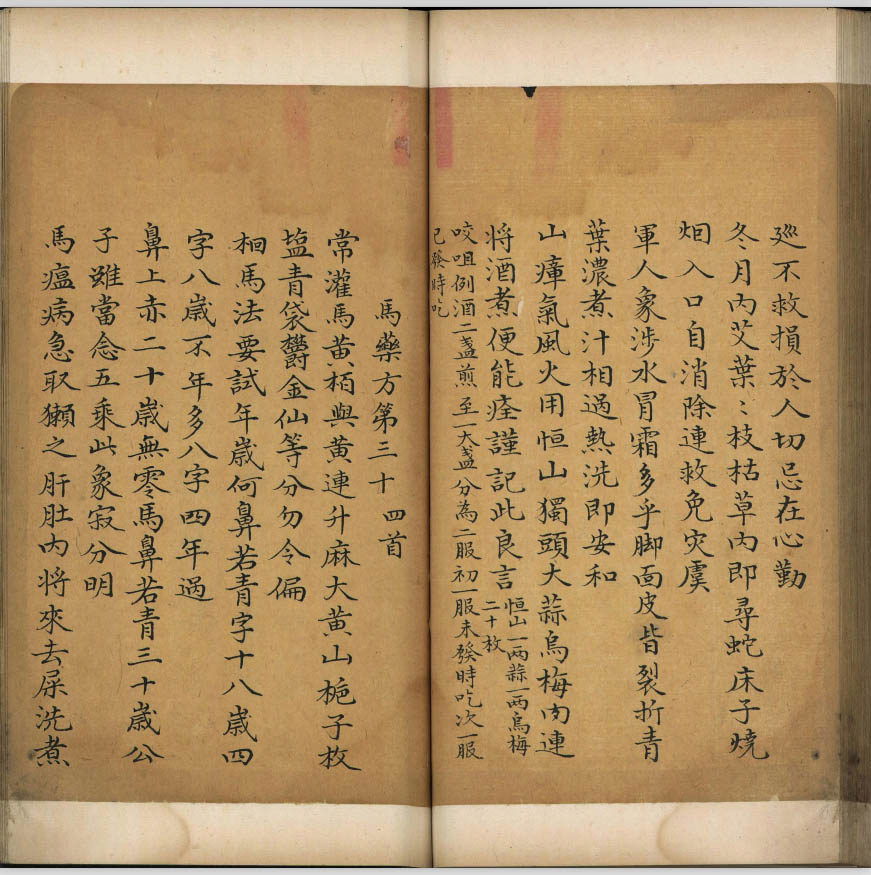 廵不救損於人切忌在心勤
冬月內艾葉〻枝枯草內即尋蛇床子燒
烟入口自消除連救免灾虞
軍人象涉水冒霜多手脚面皮皆裂折青
葉濃煮汁相過熱洗即安和
山瘴氣風火用恒山獨頭大蒜烏梅肉連
将酒煮便能痊謹記此良言恒山一两蒜一两烏梅
二十枚
㕮咀例酒二盞煎至一大盞分為二服初一服未發時吃次一服
已發時吃
馬藥方第三十四首
常灌馬黃栢與黃連升麻大黃山梔子枚
塩青袋欎金仙等分勿令偏
相馬法要試年歲何鼻若青字十八歲四
字八歲不年多八字四年過
鼻上赤二十歲無零馬鼻若青三十歲公
子雖當念五乘此象寂分明
馬瘟病急取獺之肝肚內将來去屎洗煮